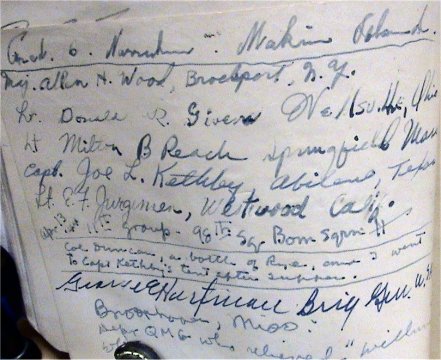 Makin Island.
Maj. Allen H. Wood, Brockport, N.Y.
Lt. Donald R. Givens Wellsville, Ohio
Lt Milton B Reach Springfield Mass
Capt. Joe L. Kethley, Abilene, Texas
Lt. E. F. Jurgensen, Westwood Calif.
11th Group - 98th Sq. Bom Sqrn H
Col. Duncan, a bottle of Rye, and I went
To Capt Kethley's tent after supper.
George Hartman Brig Gen. U.S.
Brookhaven, Miss.
QMG who relieved "